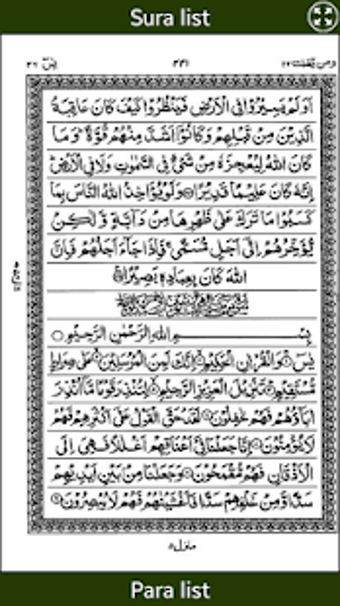 Sura list
ومن يقنت ٢٢
٤٤١
يٰسٓ ٣٦
اَوَلَمْ يَسِيْرُوْا فِى الْاَرْضِ فَيَنْظُرُوْا كَيْفَ كَانَ عَاقِبَةُ
الَّذِيْنَ مِنْ قَبْلِهِمْ وَكَانُوْٓا اَشَدَّ مِنْهُمْ قُوَّةً ؕ وَمَا
كَانَ اللّٰهُ لِيُعْجِزَهٗ مِنْ شَىْءٍ فِى السَّمٰوٰتِ وَلَا فِى الْاَرْضِ ؕ
اِنَّهٗ كَانَ عَلِيْمًا قَدِيْرًا ۝ وَلَوْ يُؤَاخِذُ اللّٰهُ النَّاسَ بِمَا
كَسَبُوْا مَا تَرَكَ عَلٰى ظَهْرِهَا مِنْ دَآبَّةٍ وَّلٰكِنْ
يُّؤَخِّرُهُمْ اِلٰٓى اَجَلٍ مُّسَمًّى ۚ فَاِذَا جَآءَ اَجَلُهُمْ فَاِنَّ
اللّٰهَ كَانَ بِعِبَادِهٖ بَصِيْرًا ۝
بِسْمِ اللّٰهِ الرَّحْمٰنِ الرَّحِيْمِ ۝
يٰسٓ ۝ وَالْقُرْاٰنِ الْحَكِيْمِ ۝ اِنَّكَ لَمِنَ الْمُرْسَلِيْنَ ۝ عَلٰى صِرَاطٍ
مُّسْتَقِيْمٍ ۝ تَنْزِيْلَ الْعَزِيْزِ الرَّحِيْمِ ۝ لِتُنْذِرَ قَوْمًا مَّآ اُنْذِرَ
اٰبَآؤُهُمْ فَهُمْ غٰفِلُوْنَ ۝ لَقَدْ حَقَّ الْقَوْلُ عَلٰٓى اَكْثَرِهِمْ فَهُمْ
لَا يُؤْمِنُوْنَ ۝ اِنَّا جَعَلْنَا فِىْٓ اَعْنَاقِهِمْ اَغْلٰلًا فَهِىَ اِلَى
الْاَذْقَانِ فَهُمْ مُّقْمَحُوْنَ ۝ وَجَعَلْنَا مِنْۢ بَيْنِ اَيْدِيْهِمْ
سَدًّا وَّمِنْ خَلْفِهِمْ سَدًّا فَاَغْشَيْنٰهُمْ فَهُمْ لَا يُبْصِرُوْنَ ۝
منزل ٥
Para list